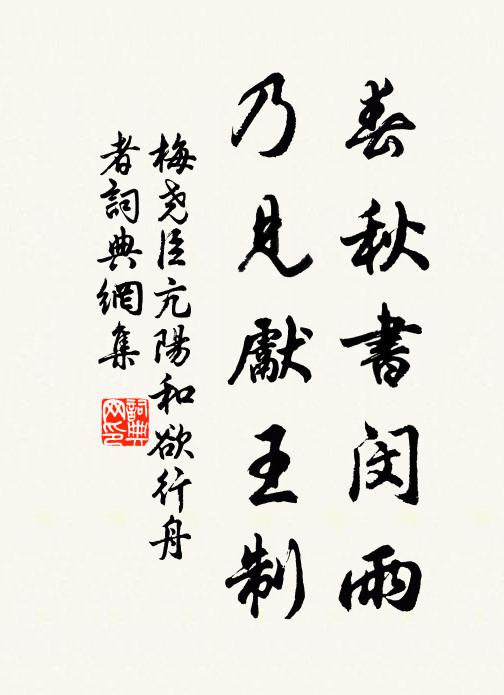 春秋書閔雨
乃見獻王制
梅堯臣亢陽和欲行舟
者詞典網集
詞典
網印